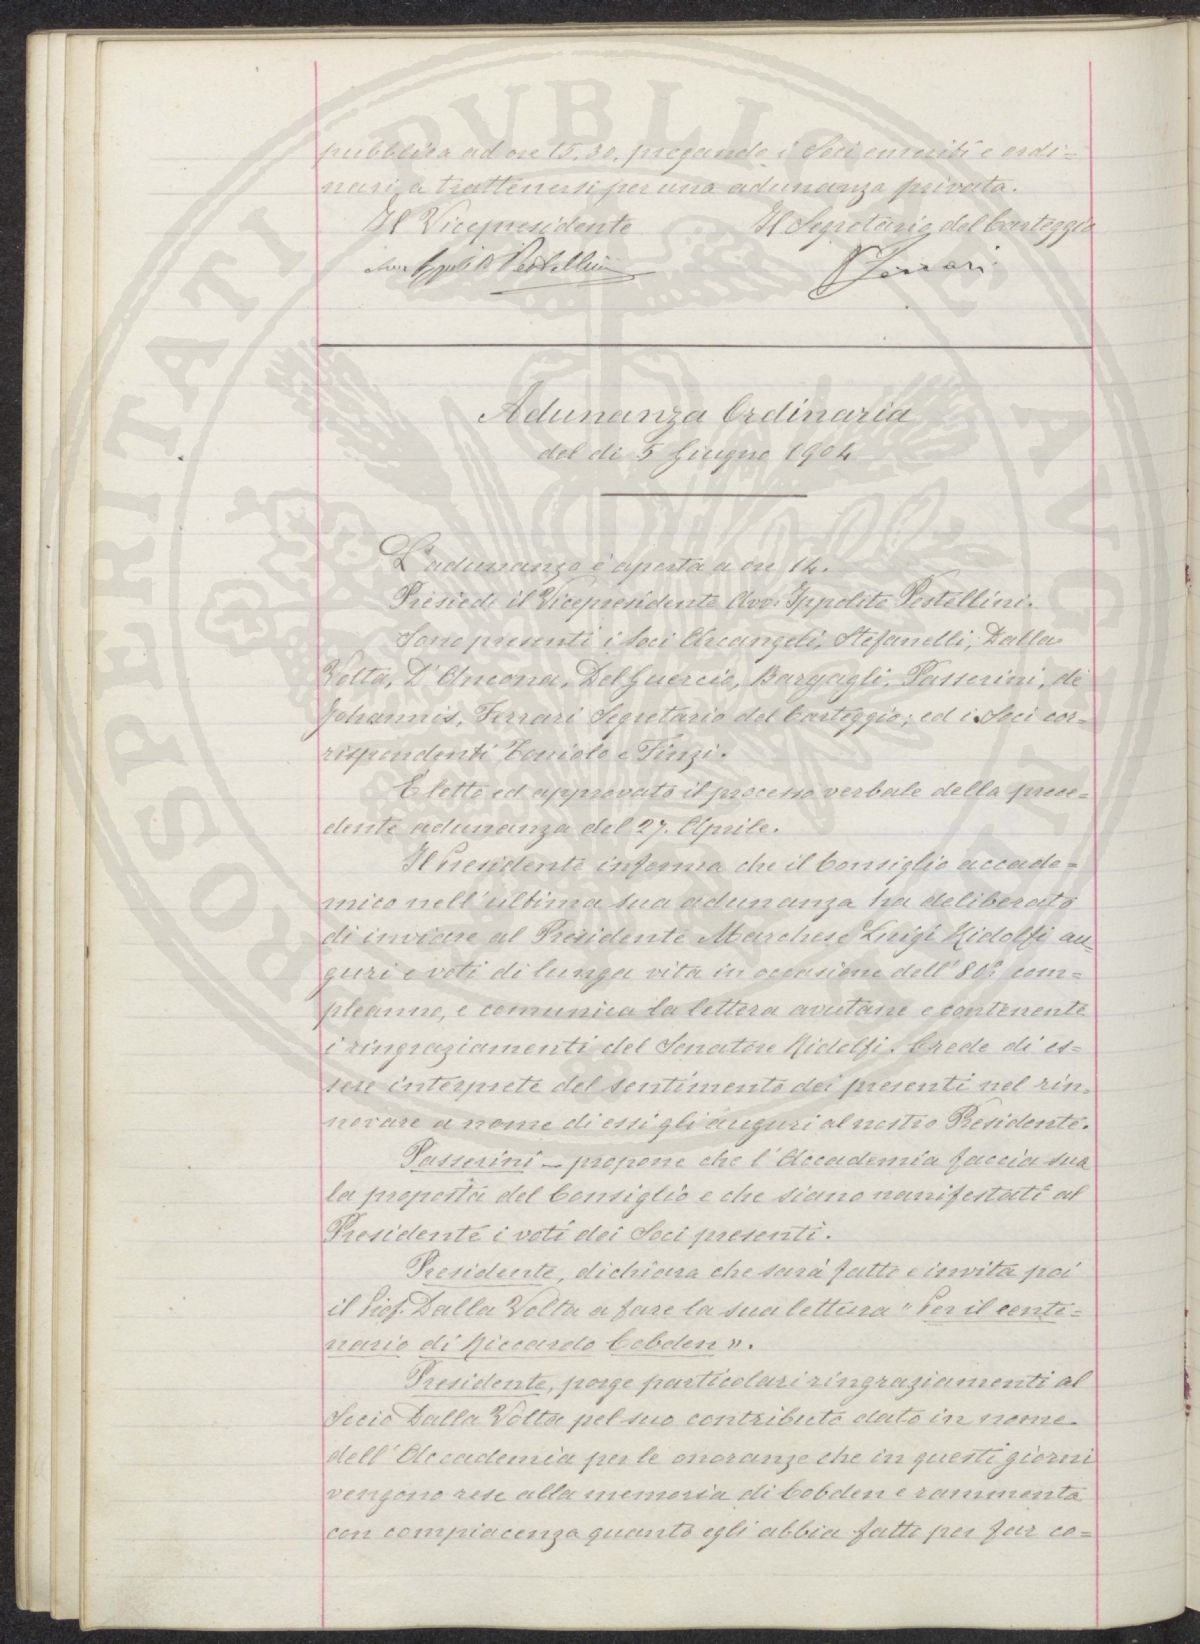 pubblica ad ore 15,30, pregando i Soci emeriti e ordi=
nari, a trattenersi per una adunanza privata.
Il Vicepresidente Il Segretario del Carteggio
Avv. Ippolito Pestellini Ferrari
Adunanza Ordinaria
del dì 5 Giugno 1904
L'adunanza è aperta a ore 14.
Presiede il Vicepresidente Avv: Ippolito Pestellini.
Sono presenti i Soci Arcangeli, Stefanelli, Dalla
Volta, D'Ancona, Del Guercio, Bargagli, Passerini, de
Johannis, Ferrari Segretario del Carteggio; ed i Soci cor=
rispondenti Toniolo e Finzi.
È letto ed approvato il processo verbale della prece=
dente adunanza del 27. Aprile.
Il Presidente informa che il Consiglio accade=
mico nell'ultima sua adunanza ha deliberato
di inviare al Presidente Marchese Luigi Ridolfi au=
guri e voti di lunga vita in occasione dell'80º com=
pleanno, e comunica la lettera avutane e contenente
i ringraziamenti del Senatore Ridolfi. Crede di es=
sere interprete del sentimento dei presenti nel rin=
novare a nome di essi gli auguri al nostro Presidente.
Passerini – propone che l'Accademia faccia sua
la proposta del Consiglio e che siano manifestati al
Presidente i voti dei Soci presenti.
Presidente, dichiara che sarà fatto e invita poi
il Prof. Dalla Volta a fare la sua lettura "Per il cente=
nario di Riccardo Cobden".
Presidente, porge particolari ringraziamenti al
Socio Dalla Volta pel suo contributo dato in nome
dell'Accademia per le onoranze che in questi giorni
vengono rese alla memoria di Cobden e rammenta
con compiacenza quanto egli abbia fatto per far co=
PROSPERITATI PVBLICAE AVGENDAE